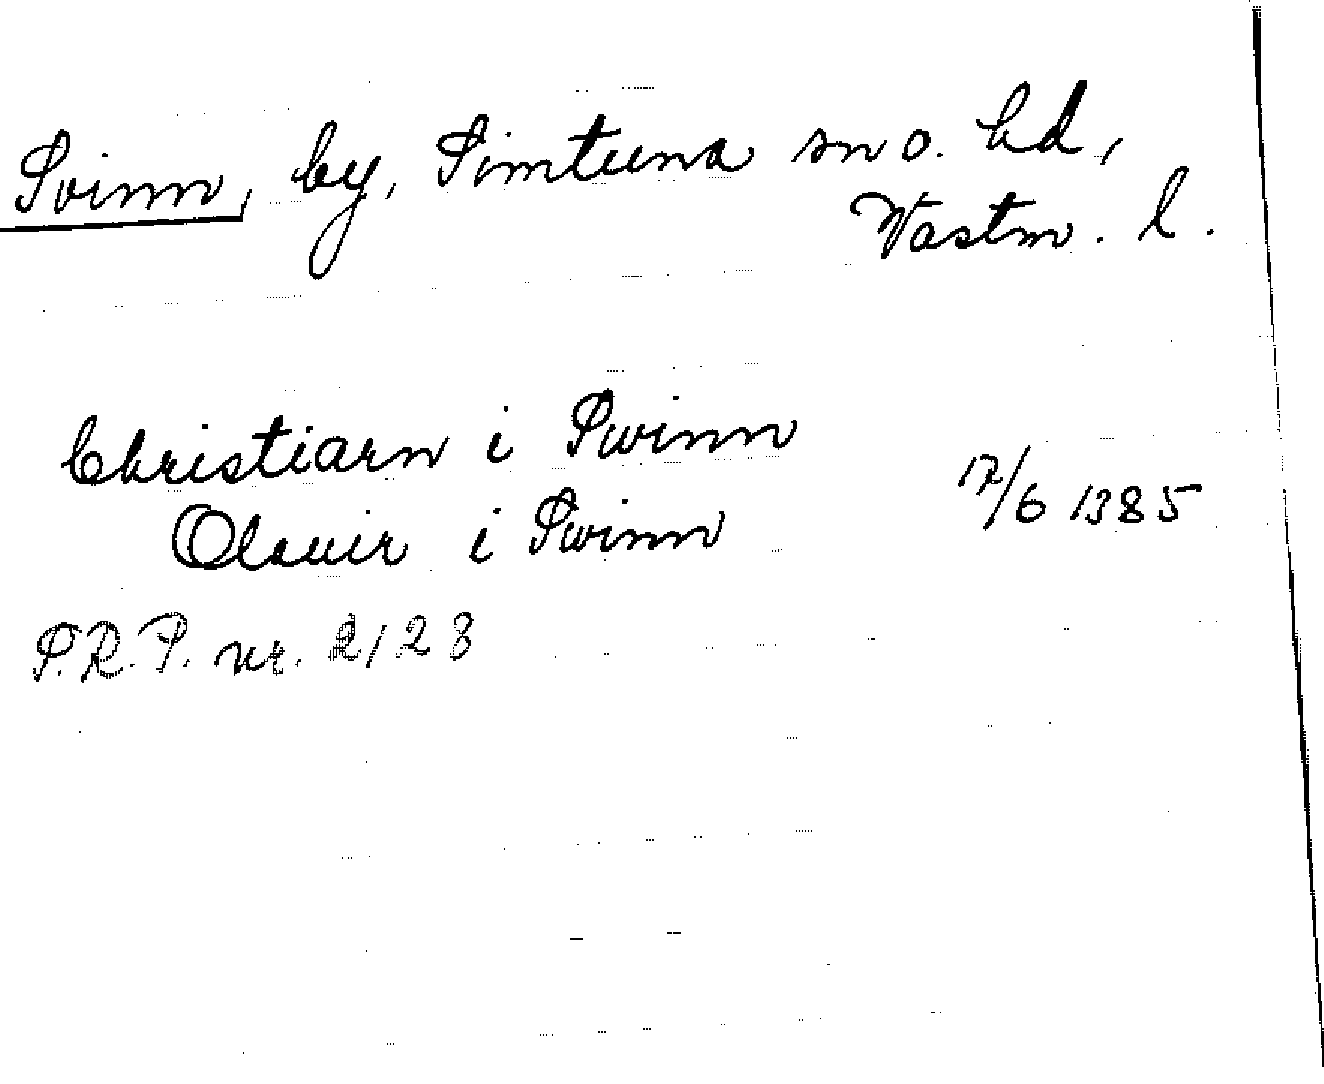 Svinn, by, Simtuna sn o. hd,
Västm. l.
Christiarn i Swinn
Olauir i Swinn
17/6 1385
P.R.P. nr. 2128